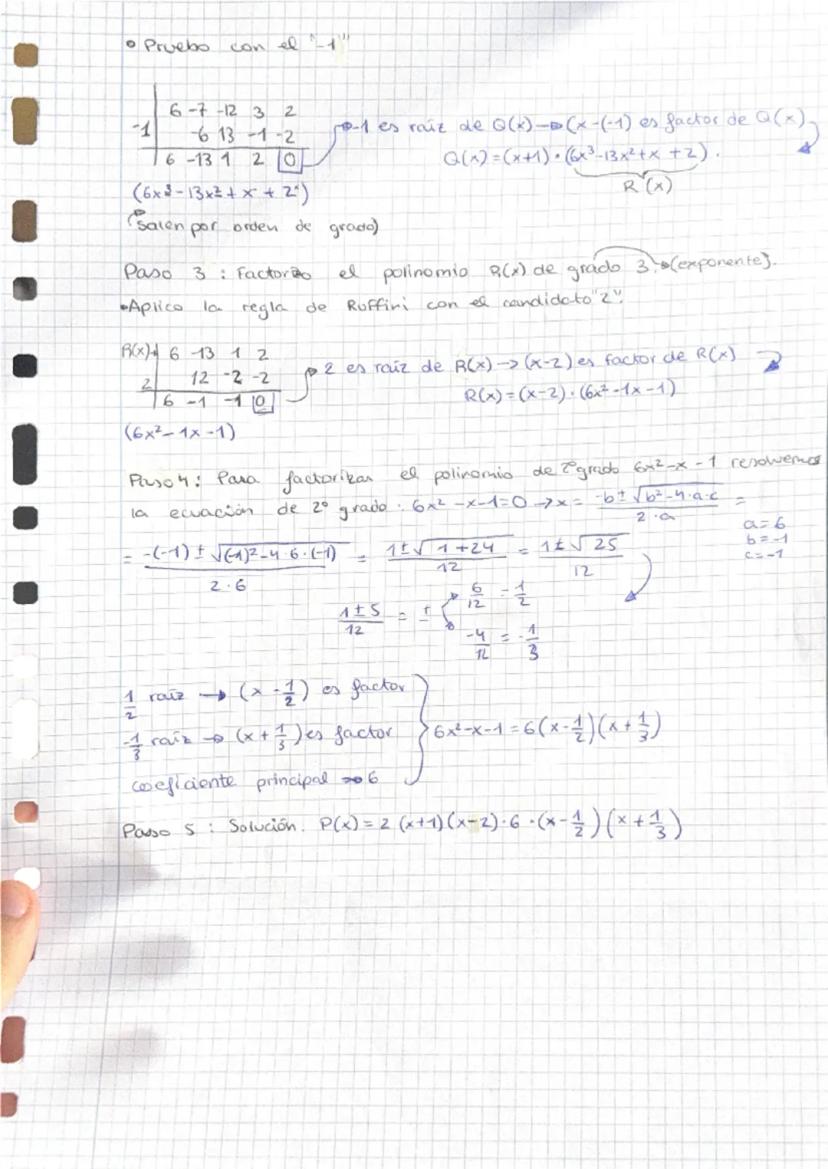 • Pruebo con el "-1"
6 -7 -12 3 2
-1 -6 13 -1 -2
6 -13 1 2 0
-1 es raíz de Q(x) → (x-(-1) es factor de Q(x)
Q(x) = (x+1) · (6x³-13x²+x +2).
R(x)
(6x³ - 13x² + x + 2)
(Salen por orden de grado)
Paso 3 : Factorizo el polinomio R(x) de grado 3. → (exponente).
• Aplico la regla de Ruffini con el candidato "2".
R(x) → 6 -13 1 2
2 12 -2 -2
6 -1 -1 0
2 es raíz de R(x) → (x-2) es factor de R(x)
R(x) = (x-2) · (6x² -1x -1)
(6x² - 1x -1)
Paso 4 : Para factorizar el polinomio de 2º grado 6x² -x - 1 resolvemos
la ecuación de 2º grado : 6x² -x-1=0 → x = -b ± √b² - 4·a·c / 2·a =
a=6
b=-1
c=-1
= -(-1) ± √(-1)²-4·6·(-1) / 2·6 = 1±√1+24 / 12 = 1±√25 / 12
1±5 / 12 = ± 6/12 = 1/2
-4/12 = -1/3
1/2 raíz → (x - 1/2) es factor
-1/3 raíz → (x + 1/3) es factor
coeficiente principal → 6
6x²-x-1 = 6(x-1/2)(x+1/3)
Paso 5 : Solución. P(x) = 2 (x+1)(x-2)·6·(x-1/2)(x+1/3)